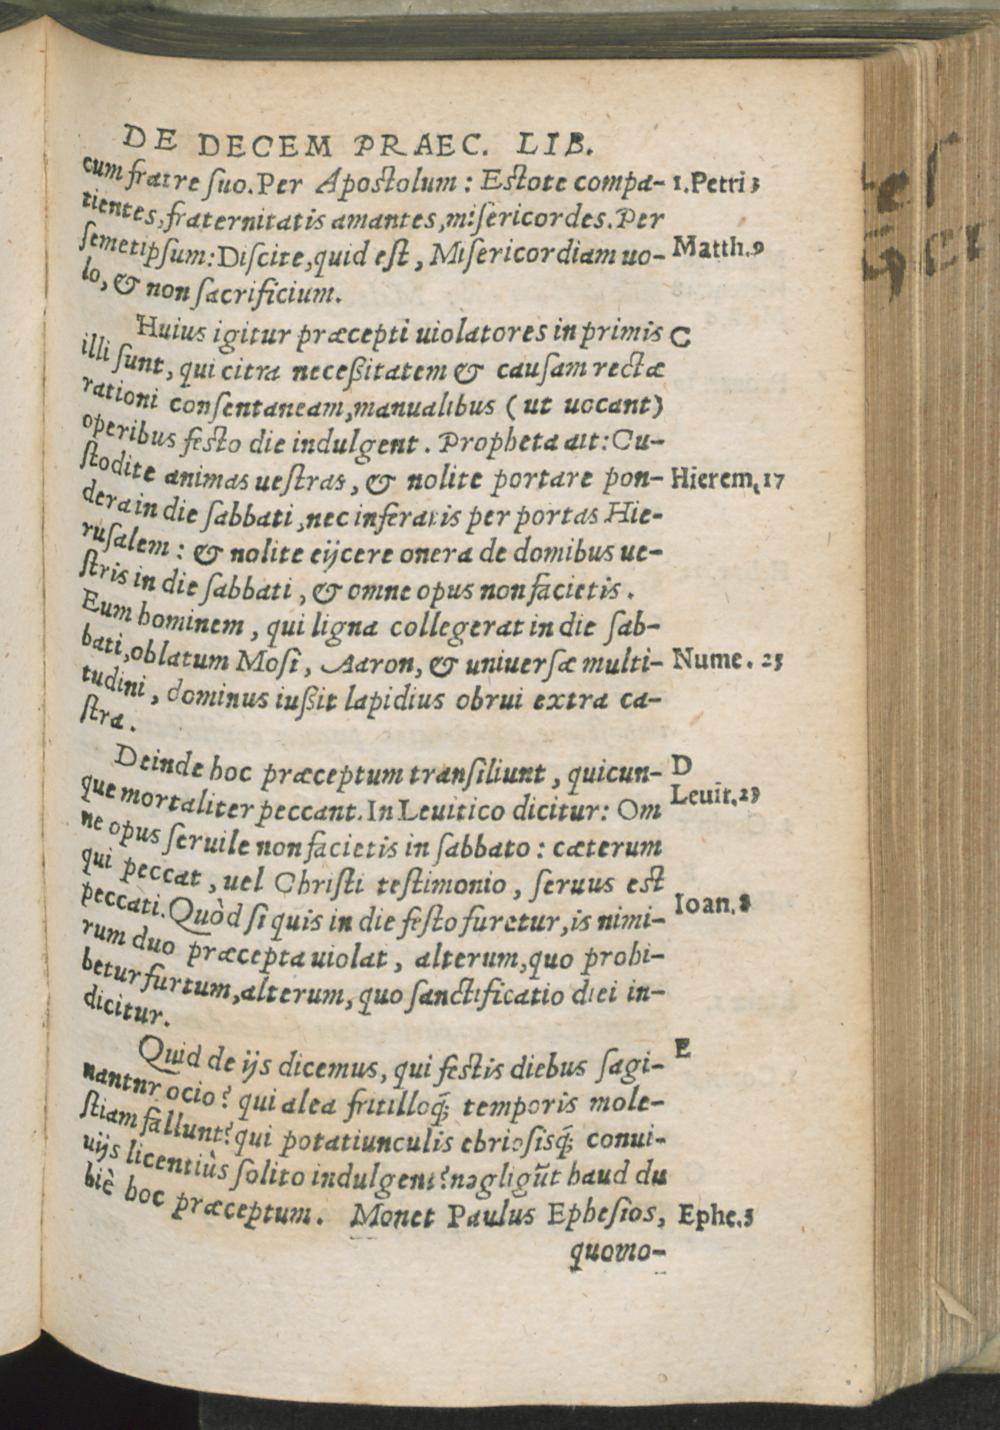 DE DECEM PRAEC. LIB.
cum fratre ſuo. Per Apoſtolum: Eſtote compa- 1. Petri 3
tientes, fraternitatis amantes, miſericordes. Per
ſemetipſum: Diſcite, quid eſt, Miſericordiam uo- Matth. 9
lo, & non ſacrificium.
Huius igitur præcepti uiolatores inprimis C
illi ſunt, qui citra neceßitatem & cauſam rectæ
rationi conſentaneam, manualibus (ut uocant)
operibus feſto die indulgent. Propheta ait: Cu-
ſtodite animas ueſtras, & nolite portare pon- Hierem. 17
dera in die ſabbati, nec inferatis per portas Hie-
ruſalem: & nolite eijcere onera de domibus ue-
ſtris in die ſabbati, & omne opus non facietis.
Eum hominem, qui ligna collegerat in die ſab-
bati, oblatum Moſi, Aaron, & uniuerſæ multi- Nume. 25
tudini, dominus iußit lapidius obrui extra ca-
ſtra.
Deinde hoc præceptum tranſiliunt, quicun- D
que mortaliter peccant. In Leuitico dicitur: Om Leuit. 23
ne opus ſeruile non facietis in ſabbato: cæterum
qui peccat, uel Chriſti teſtimonio, ſeruus eſt
peccati. Quòd ſi quis in die feſto furetur, is nimi- Ioan. 8
rum duo præcepta uiolat, alterum, quo prohi-
betur furtum, alterum, quo ſanctificatio diei in-
dicitur.
Quid de ijs dicemus, qui feſtis diebus ſagi- E
nantnr ocio? qui alea fritilloq́; temporis mole-
ſtiam fallunt? qui potatiunculis ebrioſisq́; conui-
uijs licentiùs ſolito indulgent? negligũt haud du
biè hoc præceptum. Monet Paulus Epheſios, Ephe. 5
quomo-
tel
Ger